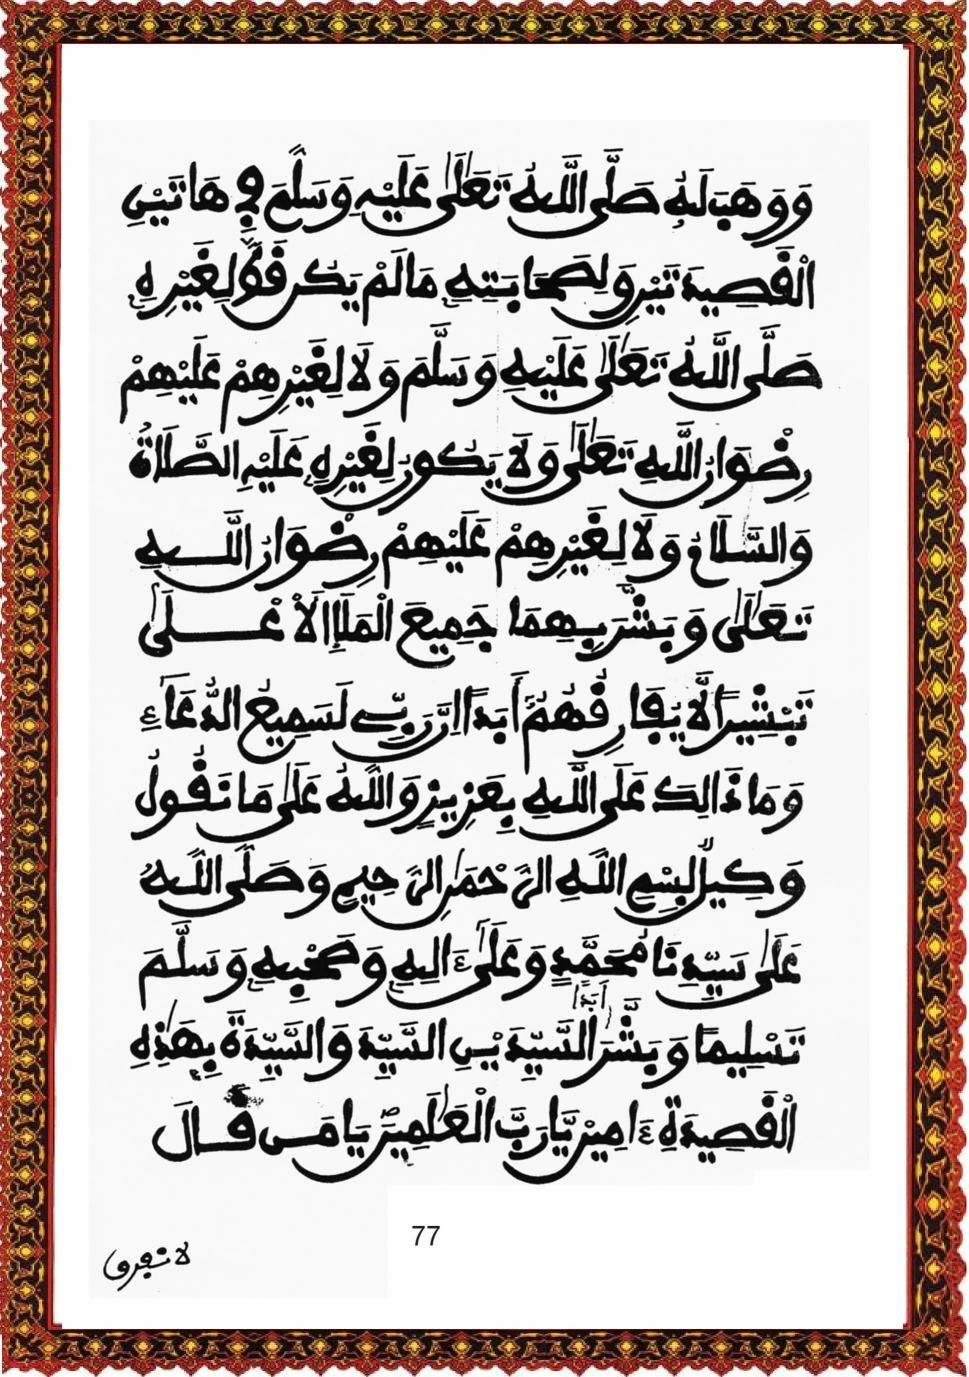 وَوَهَبَ لَهُ صَلَّى اللَّهُ تَعَالَى عَلَيْهِ وَسَلَّمَ فِي هَاتَيْنِ
الْقَصِيدَتَيْنِ وَلِصَحَابَتِهِ مَا لَمْ يَكُن قَبْلُ لِغَيْرِهِ
صَلَّى اللَّهُ تَعَالَى عَلَيْهِ وَسَلَّمَ وَلَا لِغَيْرِهِمْ عَلَيْهِمْ
رِضْوَانُ اللَّهِ تَعَالَى وَلَا يَكُونُ لِغَيْرِهِ عَلَيْهِ الصَّلَاةُ
وَالسَّلَامُ وَلَا لِغَيْرِهِمْ عَلَيْهِمْ رِضْوَانُ اللَّهِ
تَعَالَى وَبَشَّرَ بِهِمَا جَمِيعَ الْمَلَإِ الْأَعْلَى
تَبْشِيرًا لَّا يُفَارِقُهُمْ أَبَدًا إِنَّ رَبِّي لَسَمِيعُ الدُّعَاءِ
وَمَا ذَالِكَ عَلَى اللَّهِ بِعَزِيزٍ وَاللَّهُ عَلَى مَا نَقُولُ
وَكِيلٌ بِسْمِ اللَّهِ الرَّحْمَنِ الرَّحِيمِ وَصَلَّى اللَّهُ
عَلَى سَيِّدِنَا مُحَمَّدٍ وَعَلَى ءَالِهِ وَصَحْبِهِ وَسَلَّمَ
تَسْلِيمًا وَبَشَّرَ أَبَدًا السَّيِّدَيْنِ السَّيِّدَ وَالسَّيِّدَةَ بِهَذِهِ
الْقَصِيدَةِ ءَامِينَ يَا رَبَّ الْعَالَمِينَ يَا مَن قَالَ
77
لا تفرق